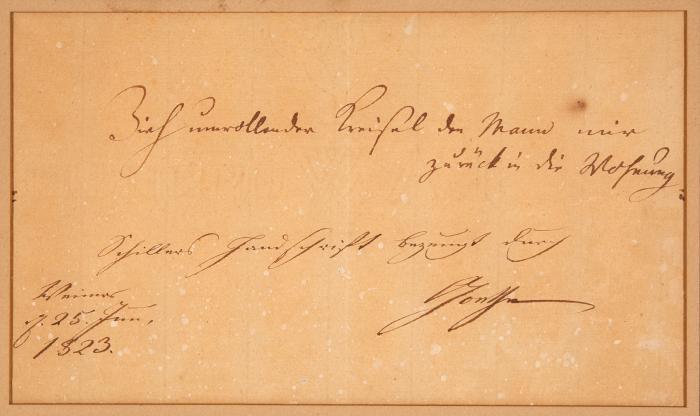 Zieh umrollender Kreisel den Mann mir
zurück in die Wohnung
Schillers Handschrift bezeugt durch
Goethe
Weimar
d. 25. Jun.
1823.